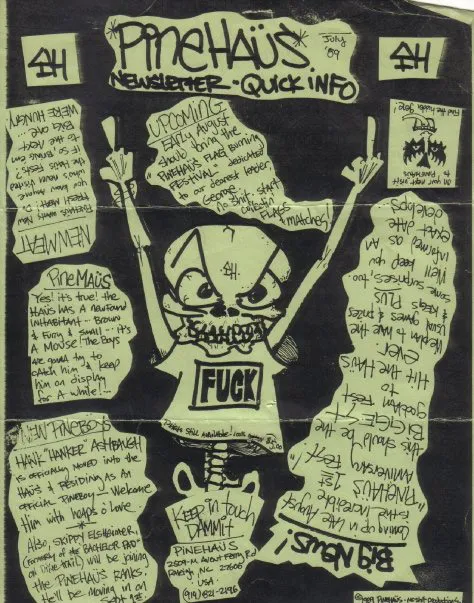 "PINEHAÜS"
July '89
NEWSLETTER · QUICK INFO
UPCOMING
EARLY August
should bring the
PINEHAUS FLAG Burning
FESTIVAL - dedicated
to our dearest leader,
George
no shit, start
collectin
FLAGS
& matches!
on your next visit
to PINEHAÜS
Find the hidden
NEW MEAT
FRESH MEAT! IF
you know anyone
who's been
the HAÜS Fest,
if so Bring em
to the Next
Big one...
WE'RE HUNGRY
Pine MAÜS
Yes! it's true! the
HAÜS HAS A new Found
INHABITANT - Brown
& Furry & small - it's
A MOUSE! The Boys
are gonna try to
catch him & keep
him on display
for A while!...
FUCK
T-Shirt still Available!
NEW PINEBOYS
HANK "HANKER" ASHBAUGH
is officially moved into the
HAÜS & RESIDING AS AN
OFFICIAL PINEBOY - Welcome
Him with heaps o' Love.
Also, SKIPPY ELSHEIMER,
(formerly of the BACHELOR PAD"
will be joining
the PINEHAÜS RANKS.
He'll be Moving in on
Sept 1st
KEEP in touch
DAMMIT
PINEHAÜS
2509-M Avent Ferry Rd
Raleigh, NC 27606
USA
(919) 821-2196
BIG NEWS!
Coming up in late August
is the Incredible
"PINEHAÜS 1st
ANNIVERSARY Fest"
this should be the
BIGGEST
goddamn Fest
to
Hit the HAÜS
EVER
We plan to have the
usual games & prizes
& Kegs PLUS
some surprises, too.
We'll keep you
informed as an
exact date
develops
©1989 PINEHAÜS